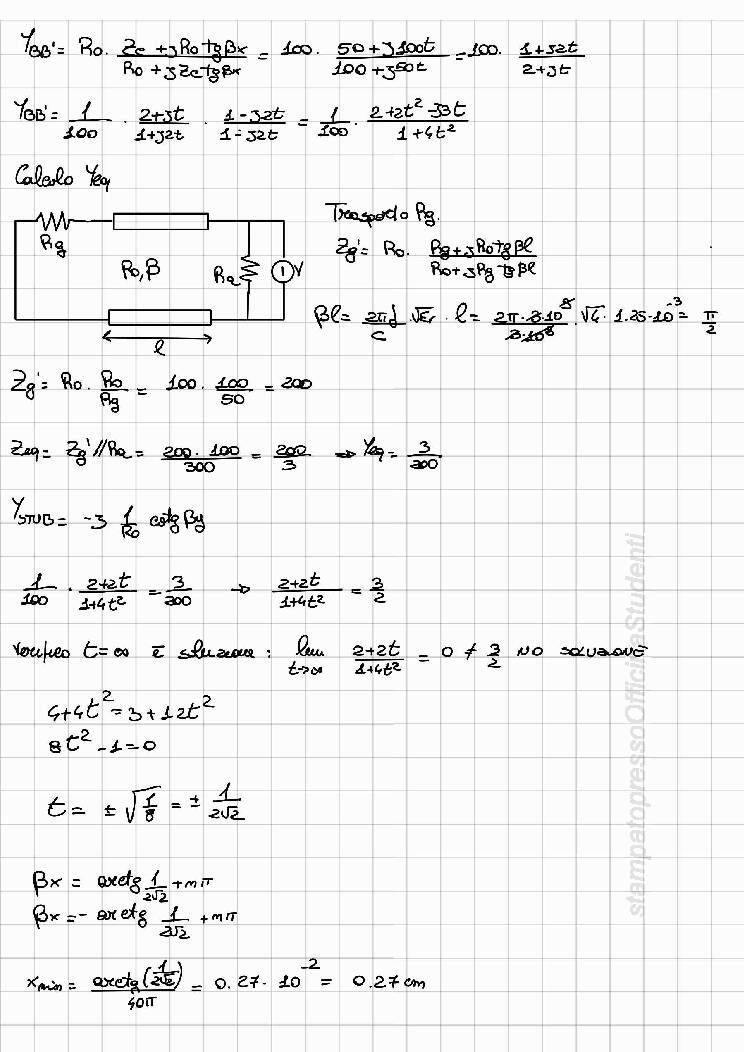 Y_BB' = Ro · (Zc + jRo tgβx)/(Ro + jZc tgβx) = 100 · (50 + j100t)/(100 + j50t) = 100 · (1 + j2t)/(2 + jt)
Y_BB' = 1/100 · (2 + jt)/(1 + j2t) · (1 - j2t)/(1 - j2t) = 1/100 · (2 + 2t² - j3t)/(1 + 4t²)
Calcolo Yeq
Rg
Ro, β
Ra
V
l
Trasporto Rg.
Zg' = Ro · (Rg + jRo tgβl)/(Ro + jRg tgβl)
βl = 2πf/c · √εr · l = (2π · 3·10⁸)/(3·10⁸) · √4 · 1.25·10⁻³ = π/2
Zg' = Ro · Ro/Rg = 100 · 100/50 = 200
Zeq = Zg' // Ra = (200 · 100)/300 = 200/3 → Yeq = 3/200
Y_STUB = -j 1/Ro cotg βy
1/100 · (2+2t)/(1+4t²) = 3/200 → (2+2t)/(1+4t²) = 3/2
Verifico t = ∞ è soluzione : lim t→∞ (2+2t)/(1+4t²) = 0 ≠ 3/2 NO SOLUZIONE
4+4t² = 3+12t²
8t² - 1 = 0
t = ± √(1/8) = ± 1/(2√2)
βx = arctg 1/(2√2) + mπ
βx = - arctg 1/(2√2) + mπ
xmin = arctg(1/(2√2))/(40π) = 0.27 · 10⁻² = 0.27 cm
stampatopressoOfficinaStudenti